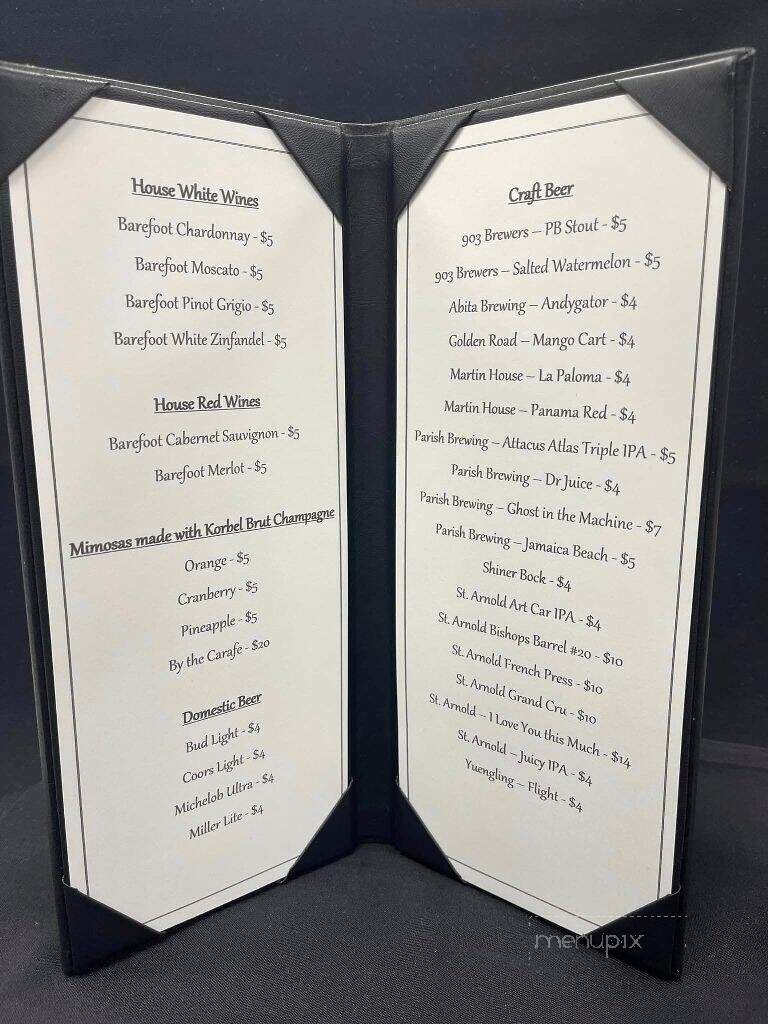 House White Wines
Barefoot Chardonnay - $5
Barefoot Moscato - $5
Barefoot Pinot Grigio - $5
Barefoot White Zinfandel - $5
House Red Wines
Barefoot Cabernet Sauvignon - $5
Barefoot Merlot - $5
Mimosas made with Korbel Brut Champagne
Orange - $5
Cranberry - $5
Pineapple - $5
By the Carafe - $20
Domestic Beer
Bud Light - $4
Coors Light - $4
Michelob Ultra - $4
Miller Lite - $4
Craft Beer
903 Brewers – PB Stout - $5
903 Brewers – Salted Watermelon - $5
Abita Brewing – Andygator - $4
Golden Road – Mango Cart - $4
Martin House – La Paloma - $4
Martin House – Panama Red - $4
Parish Brewing – Attacus Atlas Triple IPA - $5
Parish Brewing – Dr Juice - $4
Parish Brewing – Ghost in the Machine - $7
Parish Brewing – Jamaica Beach - $5
Shiner Bock - $4
St. Arnold Art Car IPA - $4
St. Arnold Bishops Barrel #20 - $10
St. Arnold French Press - $10
St. Arnold Grand Cru - $10
St. Arnold -- I Love You this Much - $14
St. Arnold – Juicy IPA - $4
Yuengling – Flight - $4
menupix